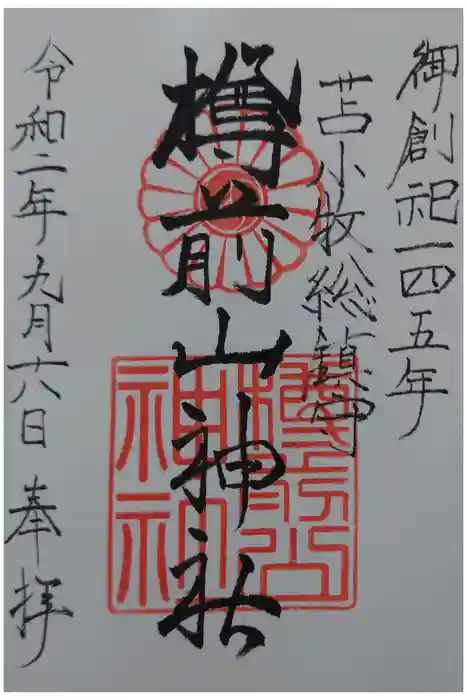 御創祀一四五年
苫小牧総鎮守
樽前山神社
令和二年九月六日 奉拝
樽前山神社